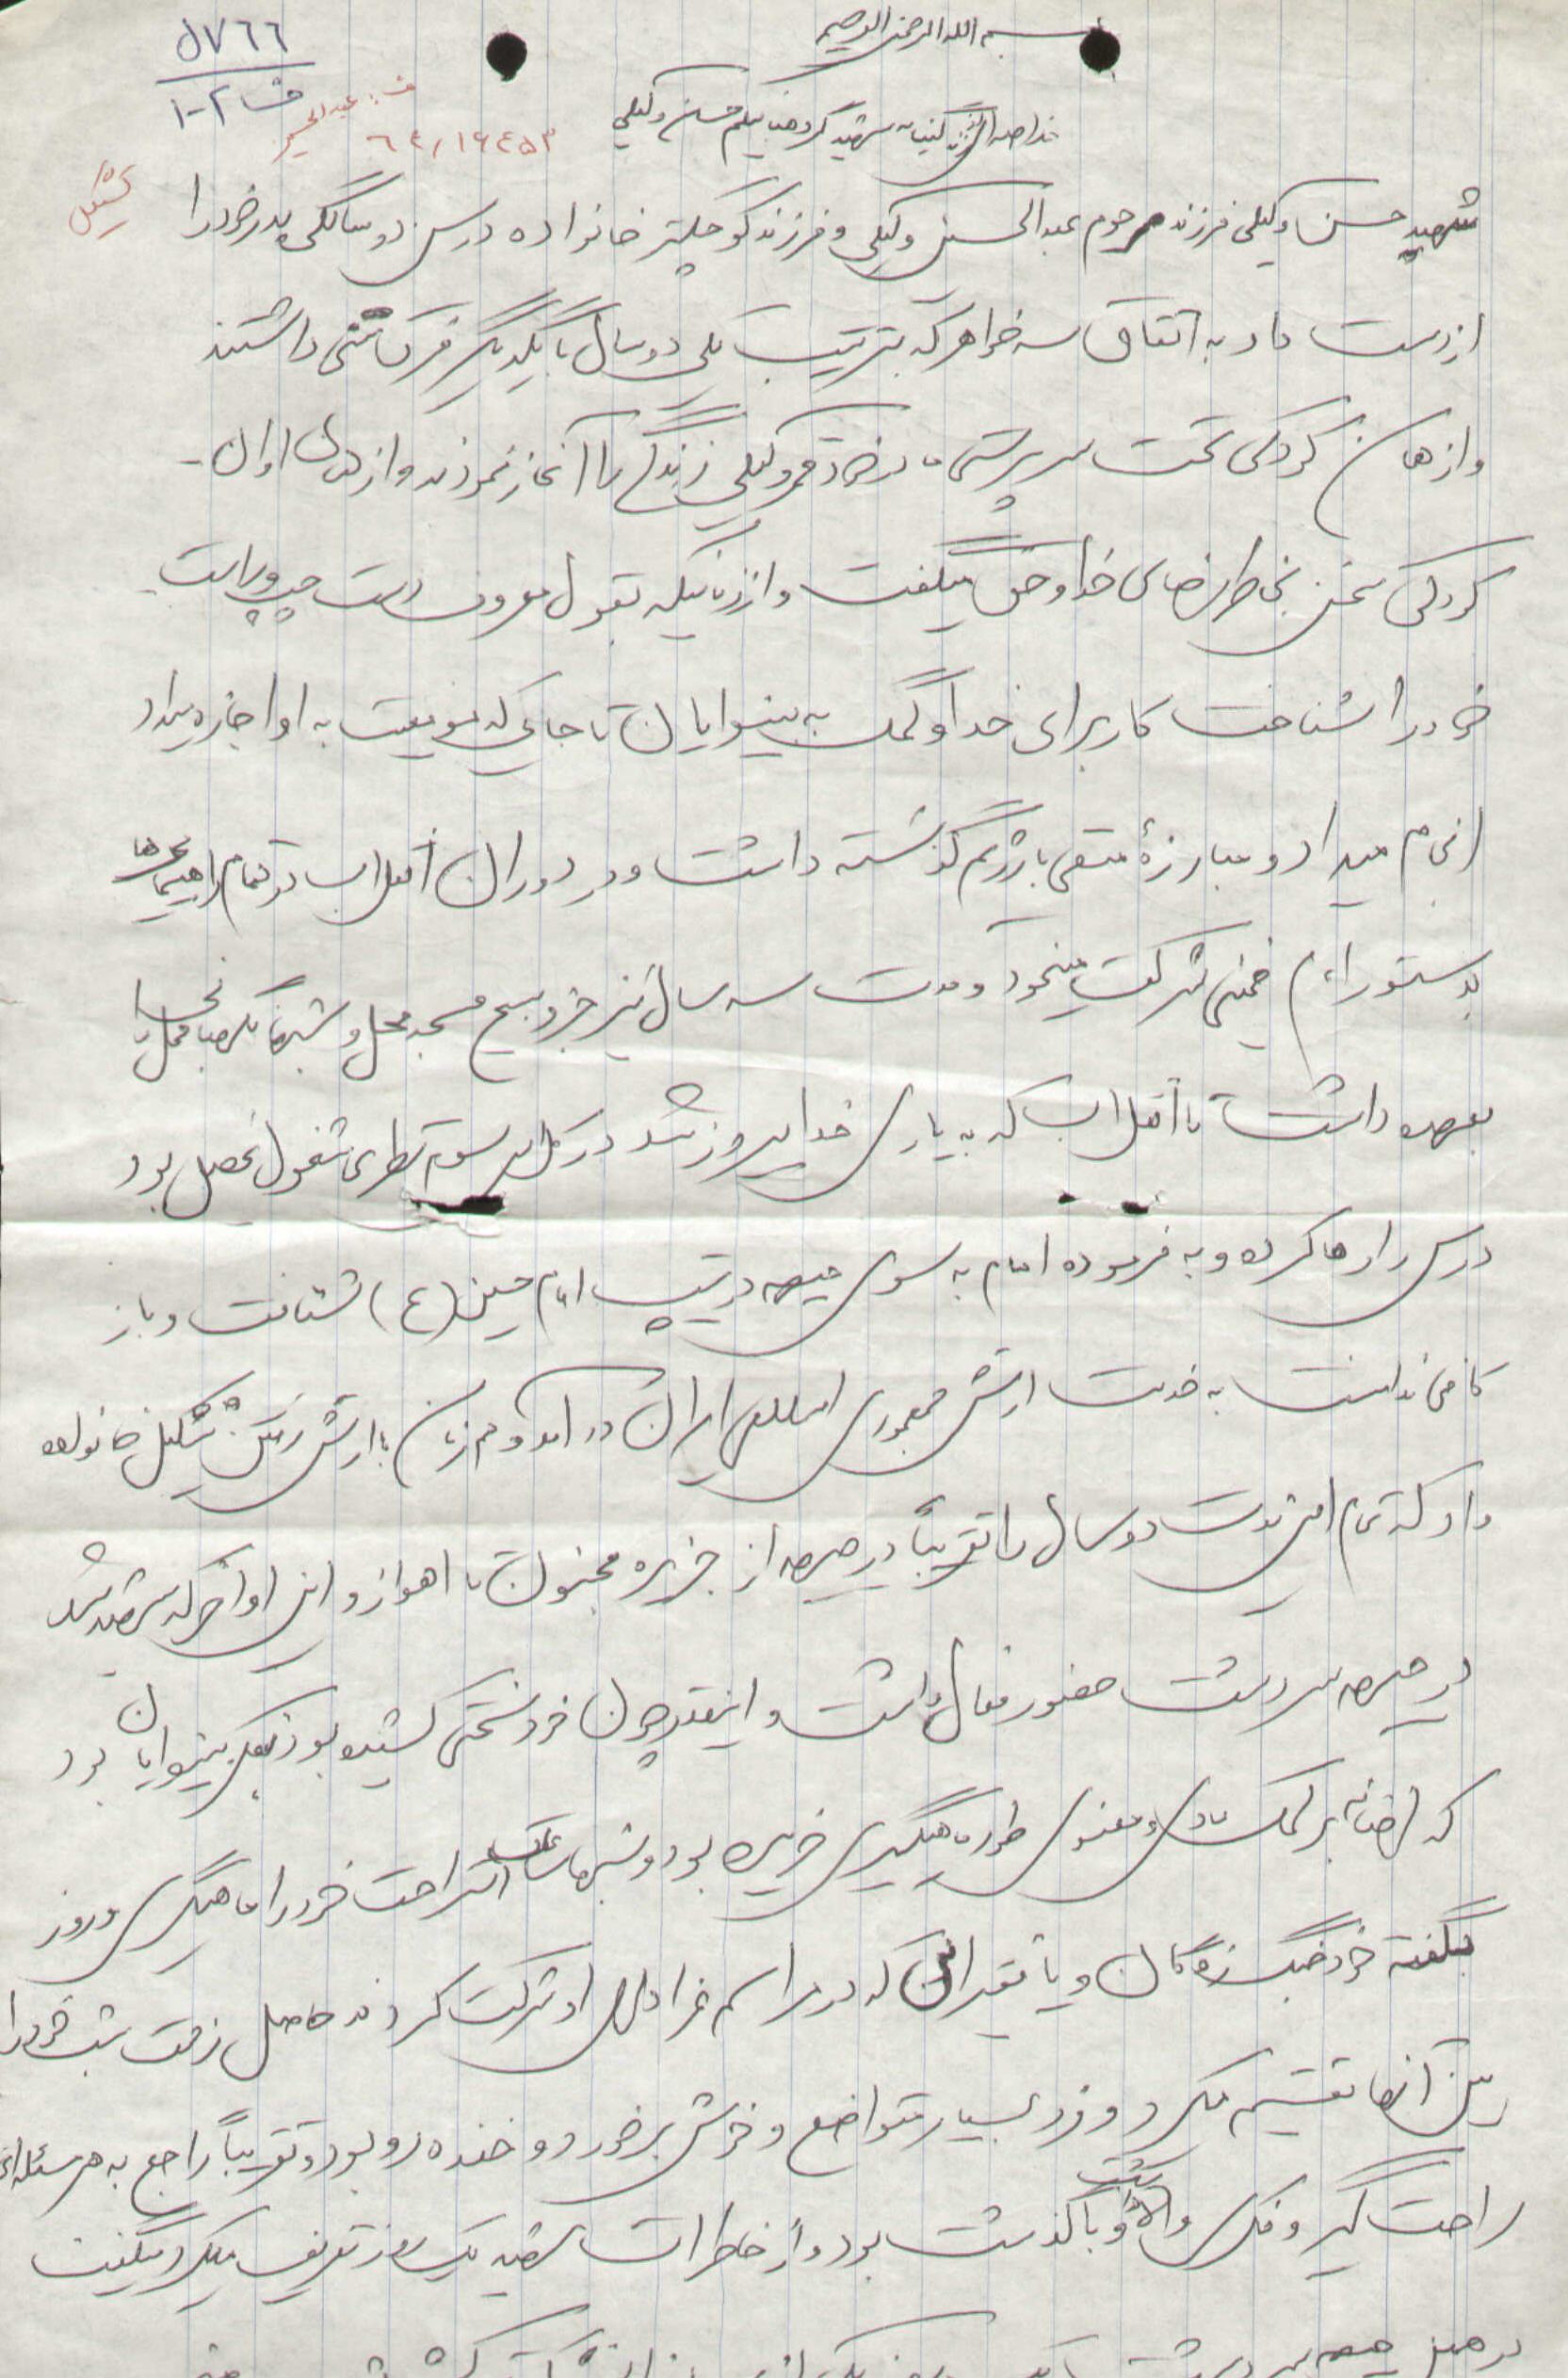 بسم الله الرحمن الرحیم
۵۷۶۶
ف ۲-۱
ف: عبدالحسین
۶۴/۱۶۴۵۳
تشکیل
شهید گروهبان یکم حسن وکیلی
شهید حسن وکیلی فرزند مرحوم عبدالحسین وکیلی و فرزند کوچکتر خانواده در سن دو سالگی پدر خود را
از دست داد به اتفاق سه خواهر که بترتیب یکی دو سال با یکدیگر فرق سنی داشتند
و از همان کودکی تحت سرپرستی مادر خود وکیلی زندگی را آغاز نمودند و از همان اوان -
کودکی سخن بخاطر رضای خدا و حق میگفت و از زمانیکه بقول معروف دست چپ و راست
خود را شناخت کار برای خدا و کمک به بینوایان تا جایی که موقعیت به او اجازه میداد
انجام میداد و مبارزهٔ متقی با رژیم گذشته داشت و در دوران انقلاب در تمام راهپیمایی‌ها
بدستور امام خمینی شرکت مینمود و مدت سه سال نیز جزو بسیج مسجد محل و شبها نگهبانی محل را
بعهده داشت تا انقلاب که به یاری خدا پیروز شد در کلاس سوم نظری مشغول تحصیل بود
درس را رها کرده و به فرموده امام به سوی جبهه در تیپ امام حسین (ع) شتافت و باز
کافی ندانست به خدمت ارتش جمهوری اسلامی ایران در آمد و همزمان با ارتش رفتن تشکیل خانواده
داد که تمام این مدت دو سال را تقریباً در جبهه از جزیره مجنون تا اهواز و این اواخر که شهید شد
در جبهه سردشت حضور فعال داشت و اینقدر چون خود سختی کشیده بود بفکر بینوایان بود
که اضافه بر کمک مادی و معنوی طور ماهیگیری خریده بود و شبها ساعت استراحت خود را ماهیگیری و روز
بگفته خود جنگ زدگان و یا فقیرانی که در مراسم عزاداری او شرکت کردند حاصل زحمت شب خود را
بین آنها تقسیم میکرد و فردی بسیار متواضع و خوش برخورد و خنده رو بود و تقریباً راجع به هر مسئله‌ای
راحت گیر و فکری والا داشت و با گذشت بود و از خاطرات شهید یک روز تعریف میکرد میگفت
در همین جبهه سردشت